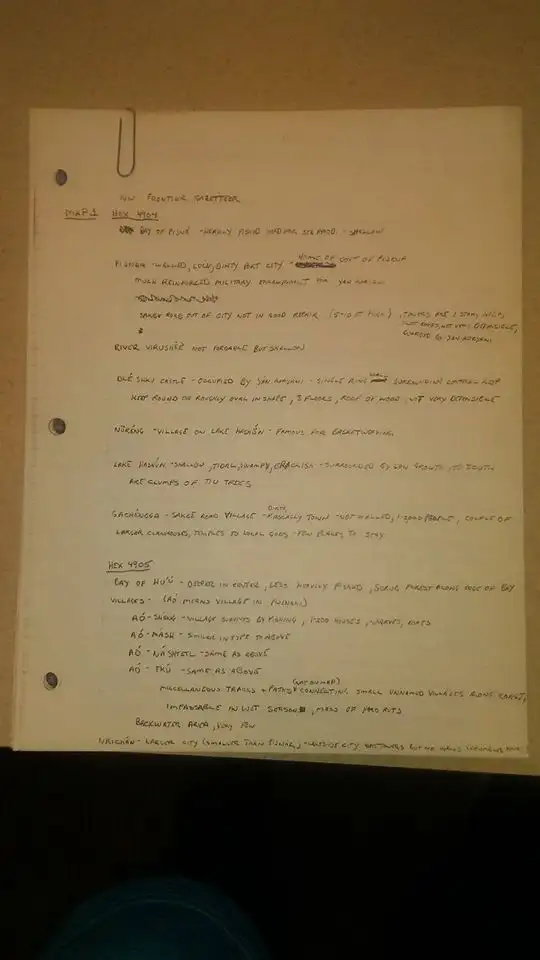 NW FRONTIER GAZETTEER
MAP 1 HEX 4904
BAY OF PIJNÁ - HEAVILY FISHED AND FOR SEAFOOD - SHALLOW
PIJNÁR - WALLED, LOW, DIRTY PORT CITY - OF GOVT OF PIJENA
MUCH REINFORCED MILITARY ENCAMPMENT FOR YAN KORYANI
SAKBE ROAD OUT OF CITY NOT IN GOOD REPAIR (5-10 FT HIGH), TOWERS ARE 1 STORY HIGH,
NOT VERY DEFENSIBLE,
GUARDED BY YAN KORYANI
RIVER VIRUSHÉÉ NOT FORDABLE BUT SHALLOW
DLÉSHKU CASTLE - OCCUPIED BY YAN KORYANI - SINGLE RING WALL SURROUNDING CENTRAL KEEP
KEEP ROUND OR ROUGHLY OVAL IN SHAPE, 3 FLOORS, ROOF OF WOOD, NOT VERY DEFENSIBLE
NÚRÉNG - VILLAGE ON LAKE - FAMOUS FOR BASKETWORKING
LAKE - SHALLOW, TIDAL, SWAMPY, BRACKISH - SURROUNDED BY GROWTH, TO SOUTH
ARE CLUMPS OF TIU TREES
GACHÉNGGA - SAKBE ROAD VILLAGE - DIRTY, RASCALLY TOWN - NOT WALLED, 1-2000 PEOPLE, COUPLE OF
LARGER CLANHOUSES, TEMPLES TO LOCAL GODS - FEW PLACES TO STAY
HEX 4905
BAY OF HU'Ú - DEEPER IN CENTER, LESS HEAVILY FISHED, SCRUB FOREST ALONG EDGE OF BAY
VILLAGES - (AÓ MEANS VILLAGE IN PIJENANI)
AÓ-SHÉNG - VILLAGE SURVIVES BY FISHING, 1-200 HOUSES, WHARVES, BOATS
AÓ-MÁSH - SIMILAR IN TYPE TO ABOVE
AÓ-NÁSHTEL - SAME AS ABOVE
AÓ-TKÚ - SAME AS ABOVE
MISCELLANEOUS TRACKS + PATHS (NOT ON MAP) CONNECTING SMALL UNNAMED VILLAGES ALONG COAST,
IMPASSABLE IN WET SEASON, MASS OF MUD RUTS
BACKWATER AREA, VERY FEW
LARGER CITY (SMALLER THAN PIJNÁR) - CITY BUT NO WALLS